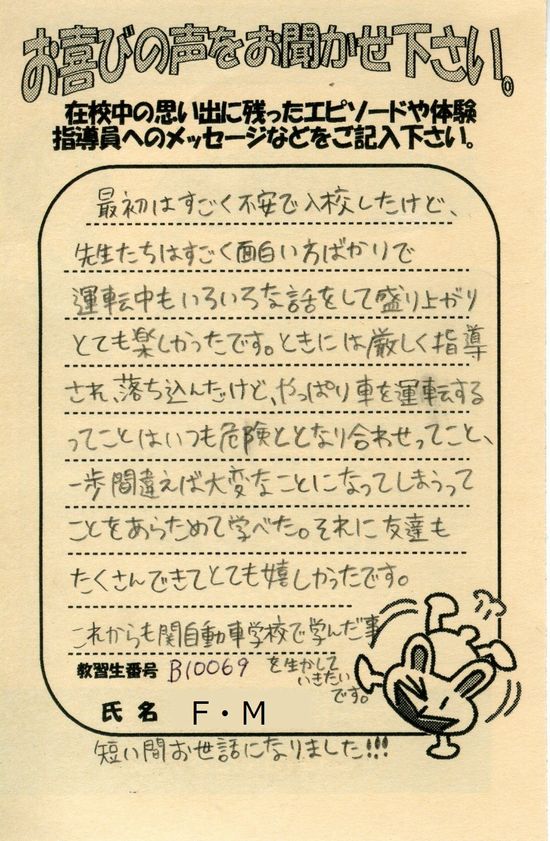 お喜びの声をお聞かせ下さい。
在校中の思い出に残ったエピソードや体験
指導員へのメッセージなどをご記入下さい。
最初はすごく不安で入校したけど、
先生たちはすごく面白い方ばかりで
運転中もいろいろな話をして盛り上がり
とても楽しかったです。ときには厳しく指導
され、落ち込んだけど、やっぱり車を運転する
ってことはいつも危険ととなり合わせってこと、
一歩間違えば大変なことになってしまうって
ことをあらためて学べた。それに友達も
たくさんできてとても嬉しかったです。
これからも関自動車学校で学んだ事
を生かして
いきたい
です。
教習生番号 B10069
氏名 F・M
短い間お世話になりました!!!